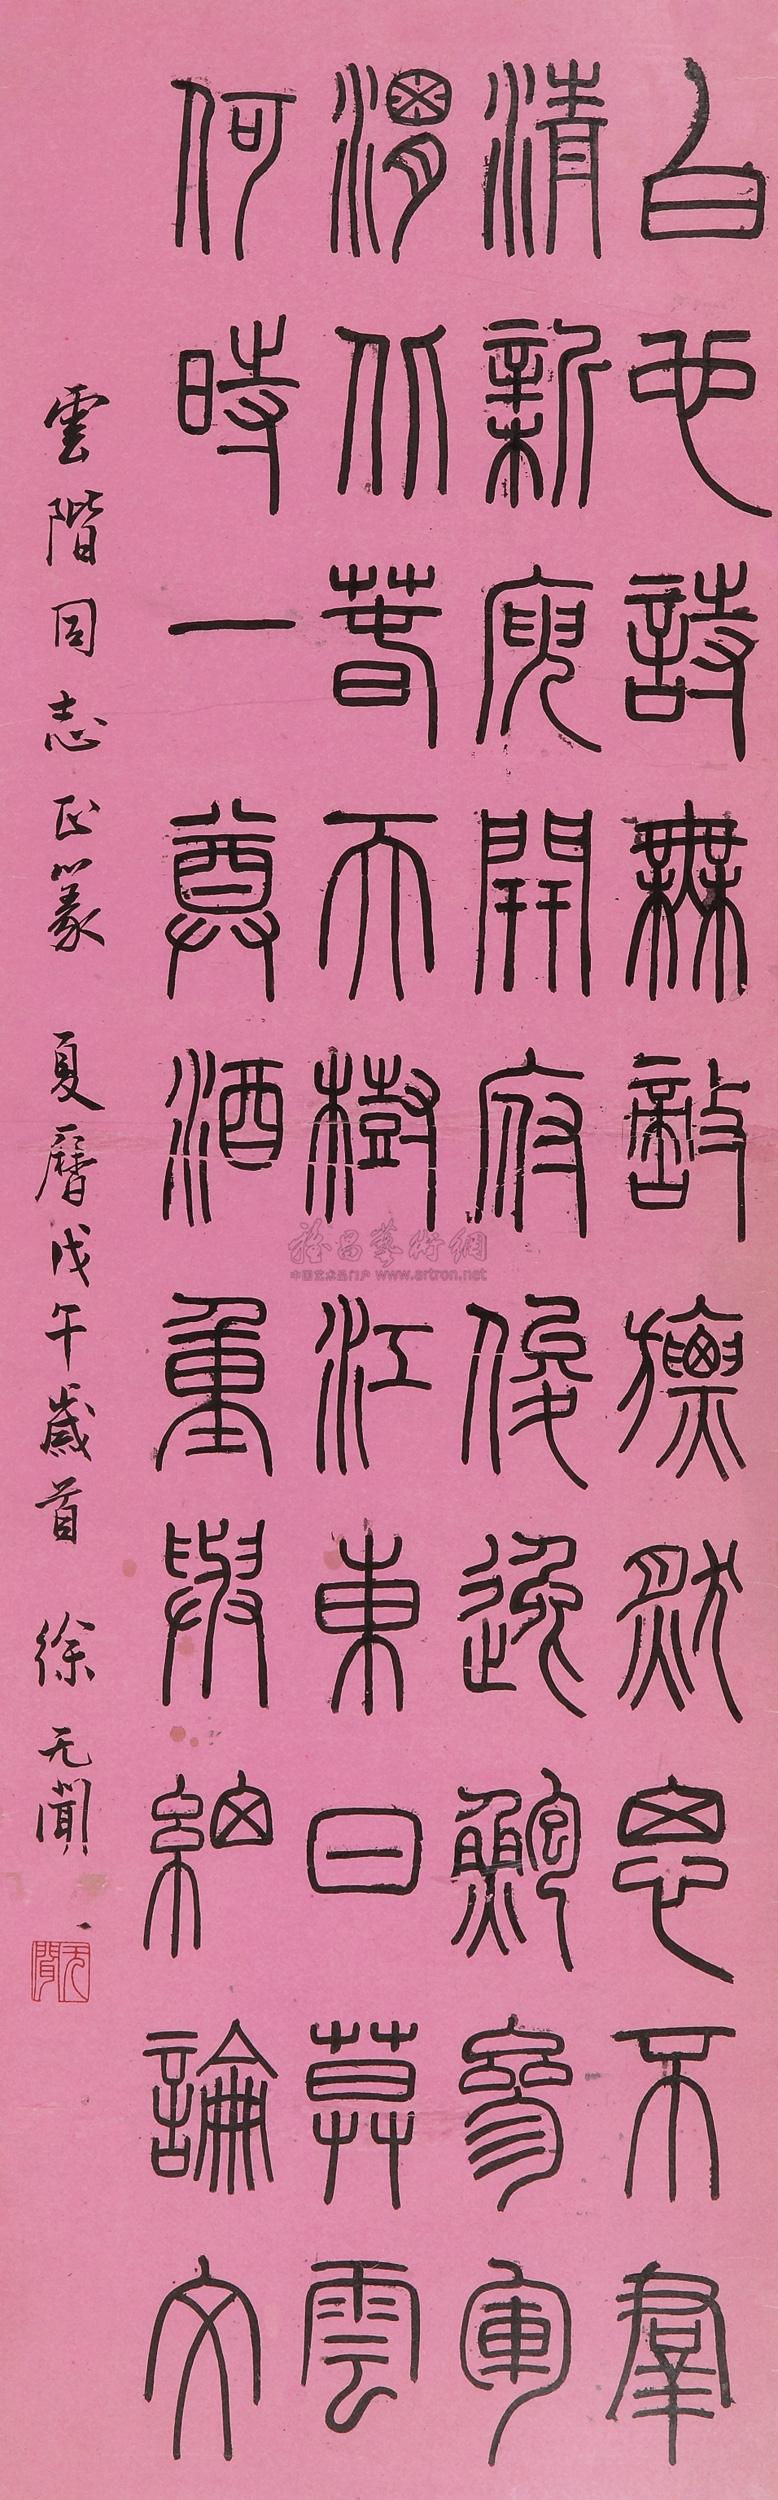 白也詩無敵飄然思不羣
清新庾開府俊逸鮑參軍
渭北春天樹江東日莫雲
何時一尊酒重與細論文
雲階同志正篆 夏曆戊午歲首 徐无聞
无聞
中国艺术品门户 www.artron.net